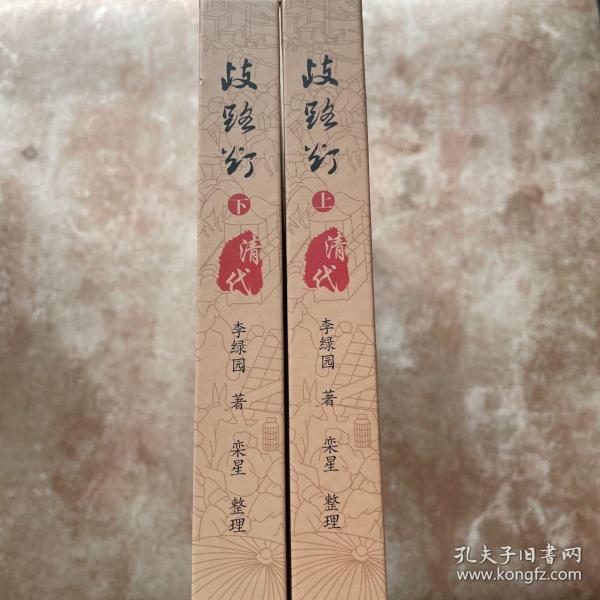 歧路灯
上
清代
李绿园 著 栾星 整理
歧路灯
下
清代
李绿园 著 栾星 整理
孔夫子旧書网
www.kongfz.com